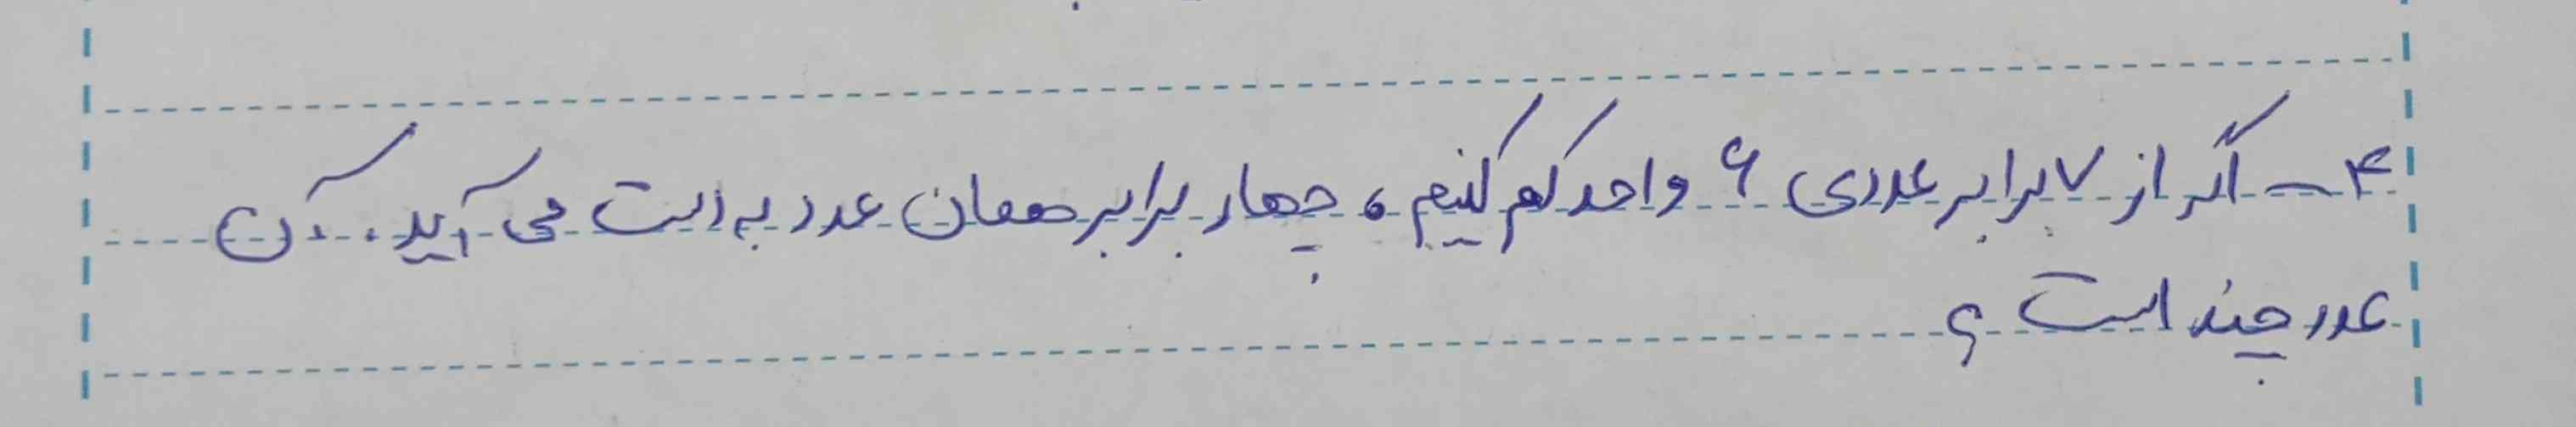 ۴ - اگر از ۷ برابر عددی ۶ واحد کم کنیم، چهار برابر همان عدد به دست می آید. آن
عدد چند است؟